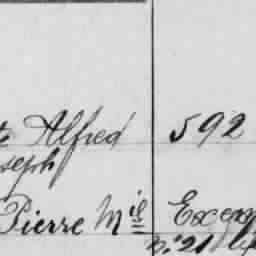 te Alfred 592
seph
Pierre Mie Exerg
No 21